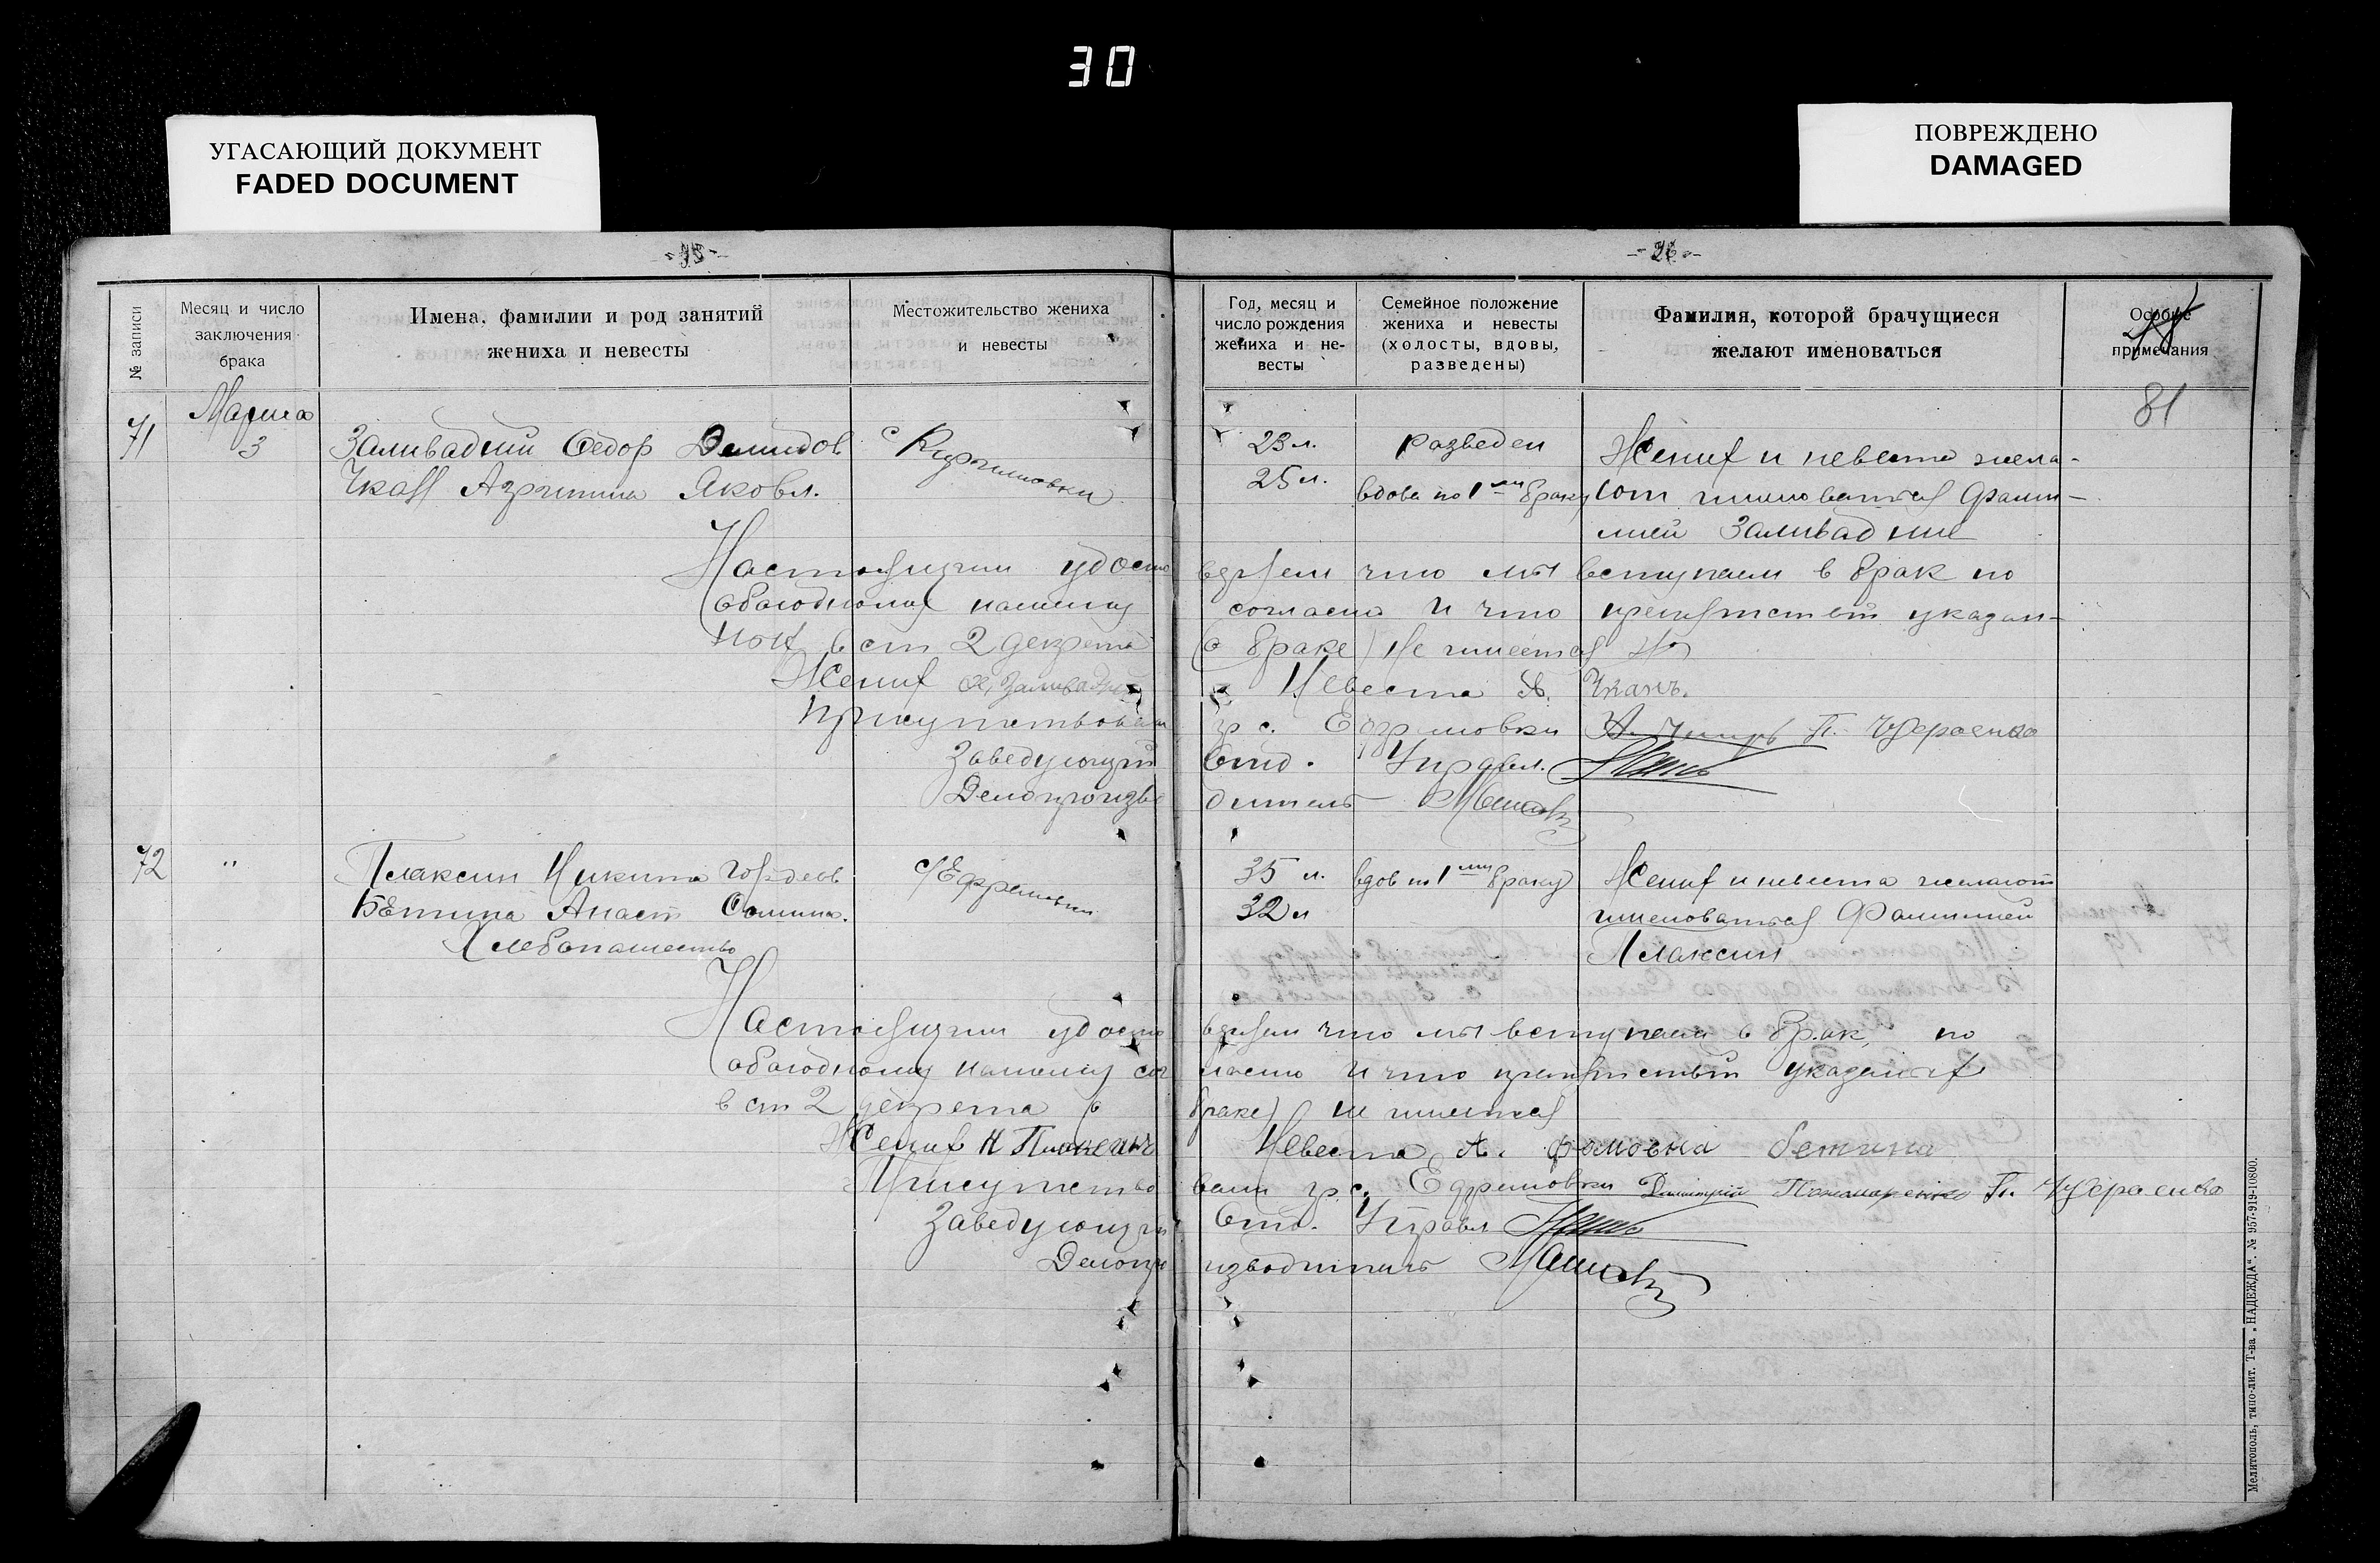 30
УГАСАЮЩИЙ ДОКУМЕНТ
FADED DOCUMENT
ПОВРЕЖДЕНО
DAMAGED
- 75 -
- 76 -
№ записи
Месяц и число
заключения
брака
Имена, фамилии и род занятий
жениха и невесты
Местожительство жениха
и невесты
Год, месяц и
число рождения
жениха и не-
весты
Семейное положение
жениха и невесты
(холосты, вдовы,
разведены)
Фамилия, которой брачущиеся
желают именоваться
Особые
примечания
81
Марта
71 3 Заливадний Федор Демидов с 23 л. разведен Жених и невеста жела-
Чкан Яковл. 25 л. вдова по 1му браку ют именоваться фами-
лией Заливадние
Настоящим удосто веряем что мы вступаем в брак по
обоюдному нашему согласию и что препятствий указан-
ных в ст 2 декрета (о браке) не имеется
Жених Заливадний Невеста А. Чкань.
Присутствовали гр с. Ефремовки П.
Заведующий Отд. Управл.
Делопроизво дитель
72 " Плаксин Никита Гордеев с/Ефремовки 35 л. вдов по 1му браку Жених и невеста желают
Бетина Анаст Фомин. 32 л именоваться Фамилией
Хлебопашество Плаксин
Настоящим удосто веряем что мы вступаем в брак по
обоюдному нашему сог ласию и что препятствий указаных
в ст 2 декрета (о браке) не имеется
Жених Н Плаксинъ Невеста А. фомовна бетина
Присутство вали гр с. Ефремовки Димитрий Пономаренко П.
Заведующий Отд. Управл
Делопро изводитель
Мелитополь, типо-лит. Т-ва „НАДЕЖДА“. № 957-919-10800.